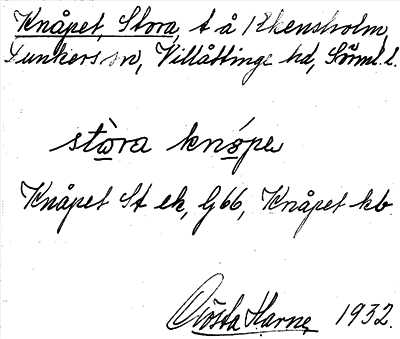 Knåpet, Stora, t å Åkensholm,
Dunkers sn, Villåttinge hd, Sörml. l.
stòra knópe
Knåpet St ek, G66, Knåpet kb
Gösta Harne, 1932.